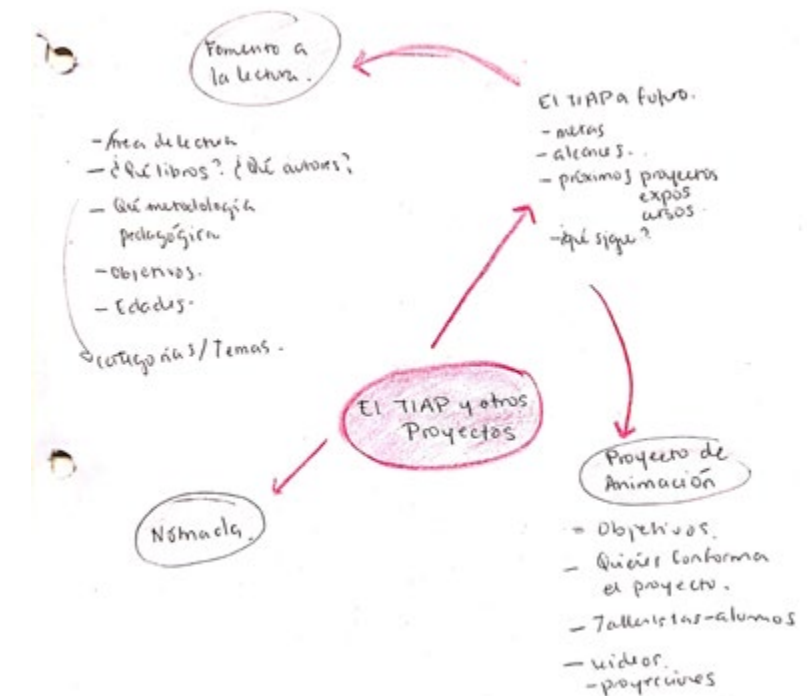 Fomento a
la lectura.
- Área de lectura
- ¿Qué libros? ¿Qué autores?
- Qué metodología
pedagógica
- Objetivos.
- Edades.
categorías/Temas.
El TIAP a futuro.
- metas
- alcances.
- próximos proyectos
expos
cursos.
- ¿qué sigue?
El TIAP y otros
Proyectos
Nómada.
Proyecto de
Animación
- Objetivos.
- Quienes conforma
el proyecto.
- Talleristas-alumnos
- videos.
- proyecciones